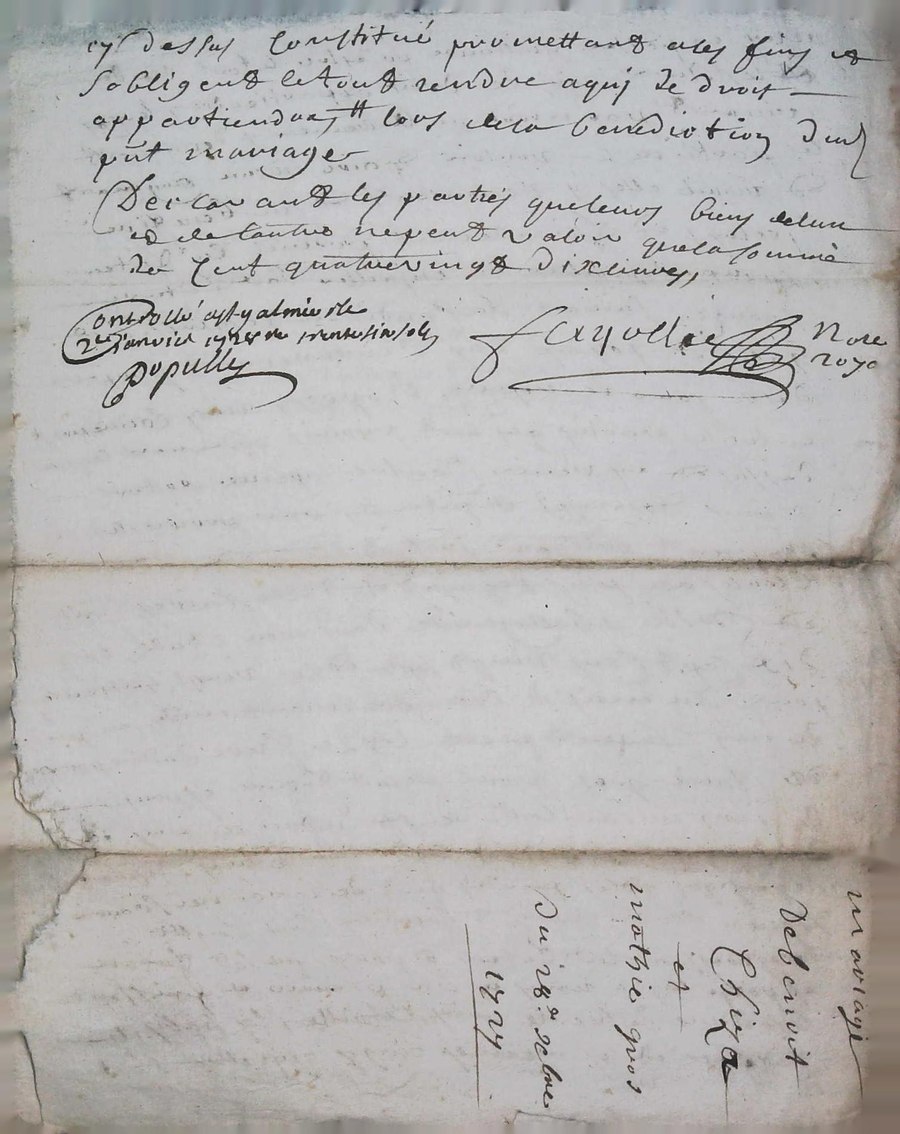 cy dessus Constitué promettant a ces fins et
sobligent le tout rendre a qui de droit
appartiendra, lors de la benediction dud
pnt mariage
Declarant les parties que leurs biens de lun
et de lautre ne peut valoir que la somme
de Cent quatre vingt dix livres,
Controllé a st ymier le
2e Janvier 1728
Pupulle
Fayolle
Nore
royo
mariage
De benoit
Chiza
et
mathie gros
Du 28e xbre
1727